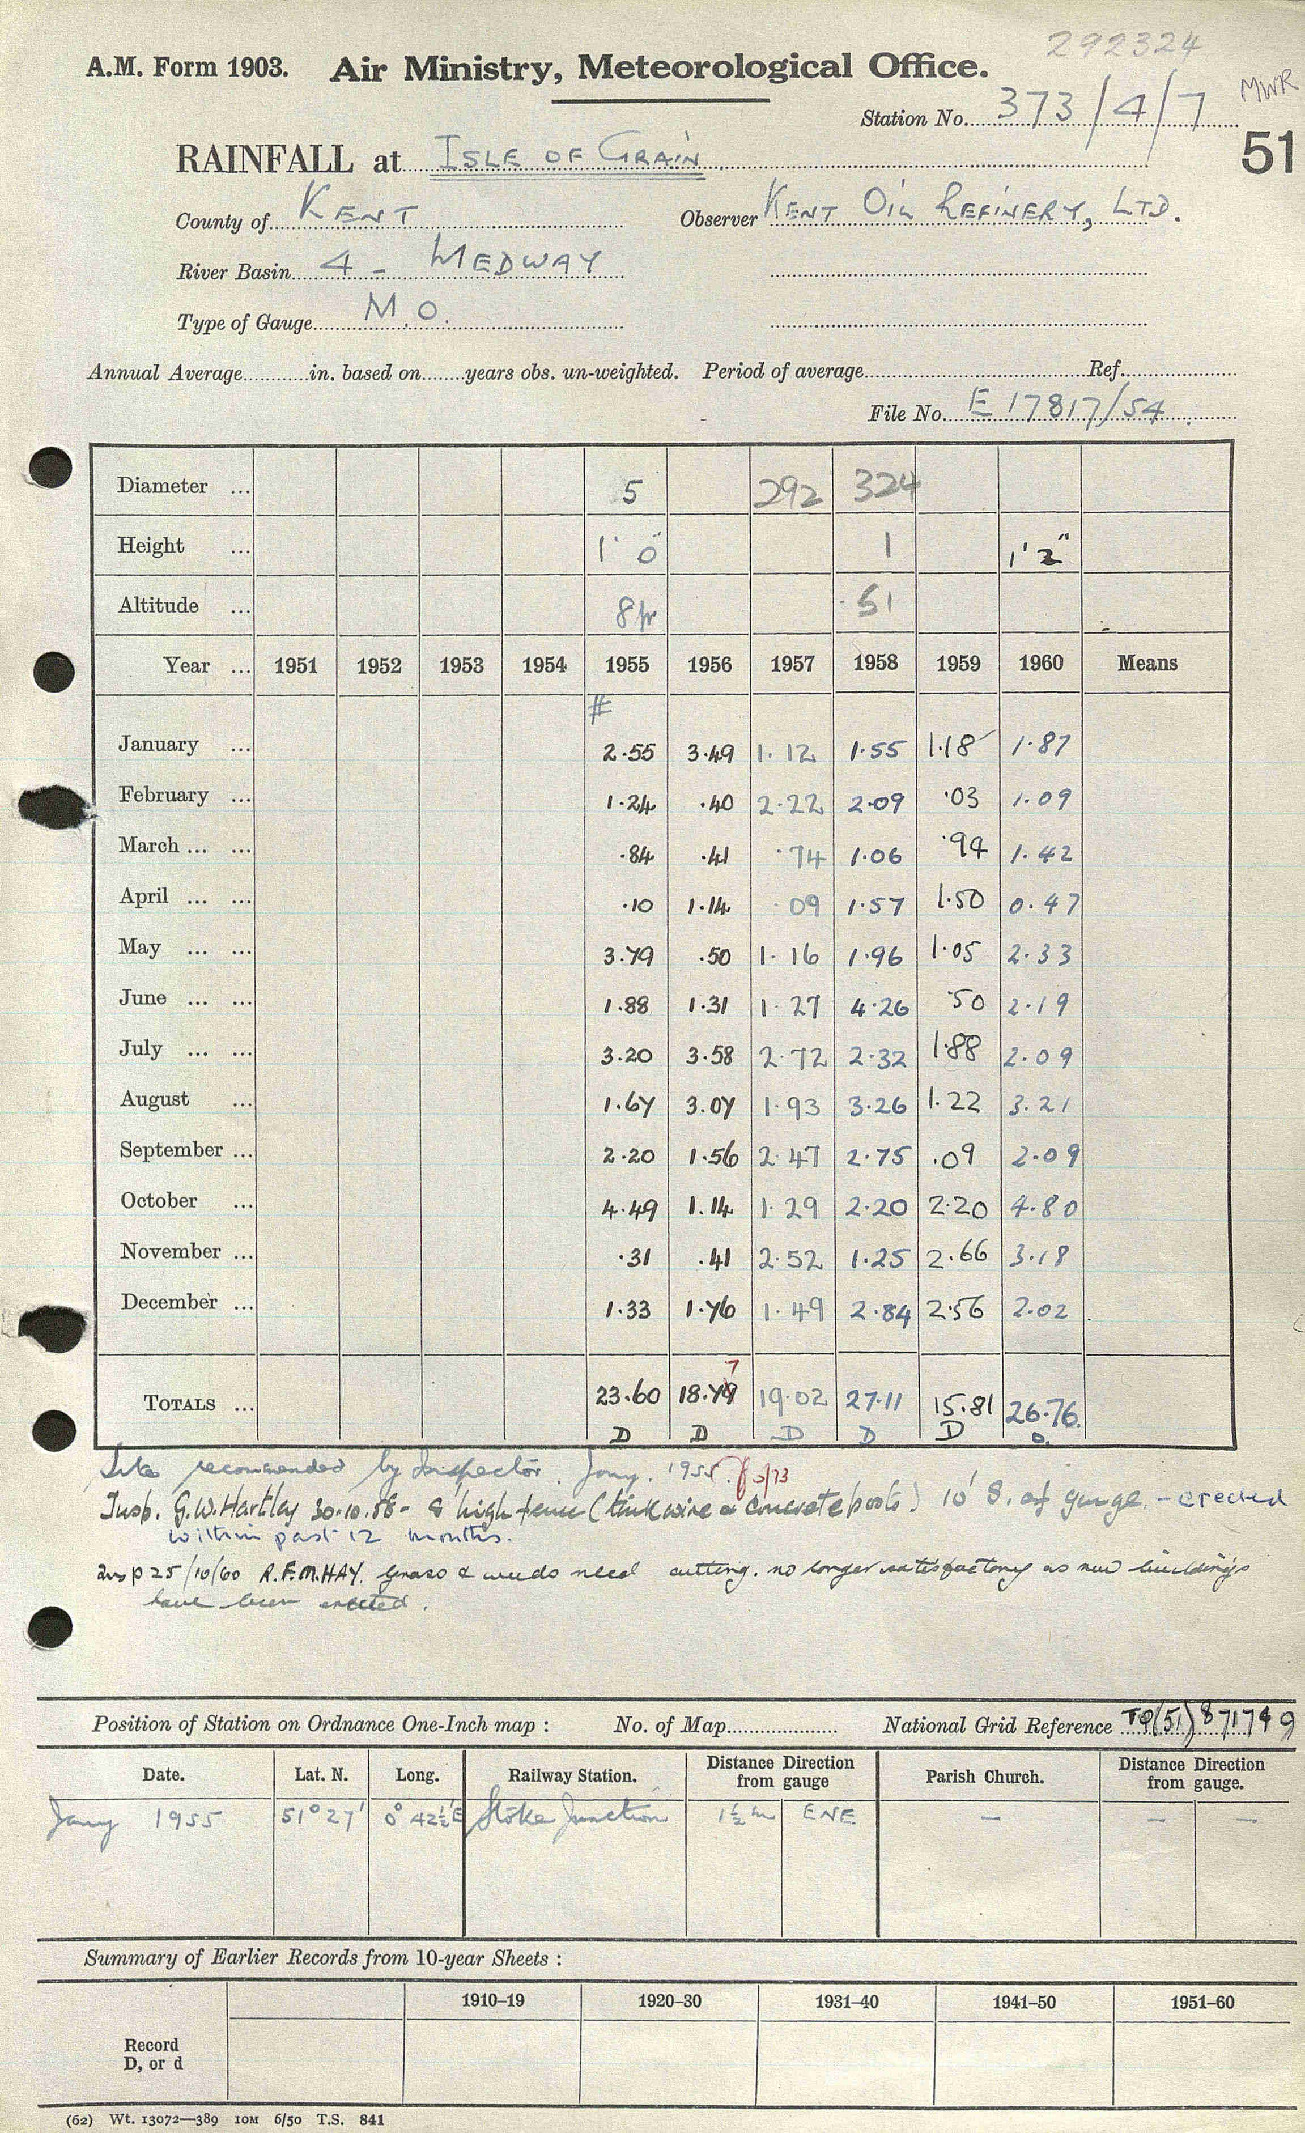 292324
A.M. Form 1903. Air Ministry, Meteorological Office.
MWR
Station No. 373/4/7
51
RAINFALL at ISLE OF GRAIN
County of KENT Observer KENT OIL REFINERY, LTD.
River Basin 4 - MEDWAY
Type of Gauge M.O.
Annual Average in. based on years obs. un-weighted. Period of average Ref.
File No. E 17817/54
Diameter ... 5 292 324
Height ... 1' 0" 1 1' 2"
Altitude ... 8 51
Year ... 1951 1952 1953 1954 1955 1956 1957 1958 1959 1960 Means
#
January ... 2.55 3.49 1.12 1.55 1.18 1.87
February ... 1.24 .40 2.22 2.09 .03 1.09
March ... ... .84 .41 .74 1.06 .94 1.42
April ... ... .10 1.14 .09 1.57 1.50 0.47
May ... ... 3.79 .50 1.16 1.96 1.05 2.33
June ... ... 1.88 1.31 1.27 4.26 .50 2.19
July ... ... 3.20 3.58 2.72 2.32 1.88 2.09
August ... 1.67 3.07 1.93 3.26 1.22 3.21
September ... 2.20 1.56 2.47 2.75 .09 2.09
October ... 4.49 1.14 1.29 2.20 2.20 4.80
November ... .31 .41 2.52 1.25 2.66 3.18
December ... 1.33 1.76 1.49 2.84 2.56 2.02
7
TOTALS ... 23.60 18.78 19.02 27.11 15.81 26.76
D D D D D D.
Site recommended by Inspector. Jany. 1955.
Insp. G.W. Hartley 30.10.58 - 8' high fence (thick wire & concrete posts) 10' S. of gauge - erected
within past 12 months.
Insp 25/10/60 R.F.M.HAY. Grass & weeds need cutting. no longer satisfactory as new buildings
have been erected.
Position of Station on Ordnance One-Inch map : No. of Map National Grid Reference TQ(51)871749
Date. Lat. N. Long. Railway Station. Distance Direction from gauge Parish Church. Distance Direction from gauge.
Jany 1955 51° 27' 0° 42½'E Stoke Junction 1½ m ENE — — —
Summary of Earlier Records from 10-year Sheets :
1910–19 1920–30 1931–40 1941–50 1951–60
Record
D, or d
(62) Wt. 13072—389 10M 6/50 T.S. 841